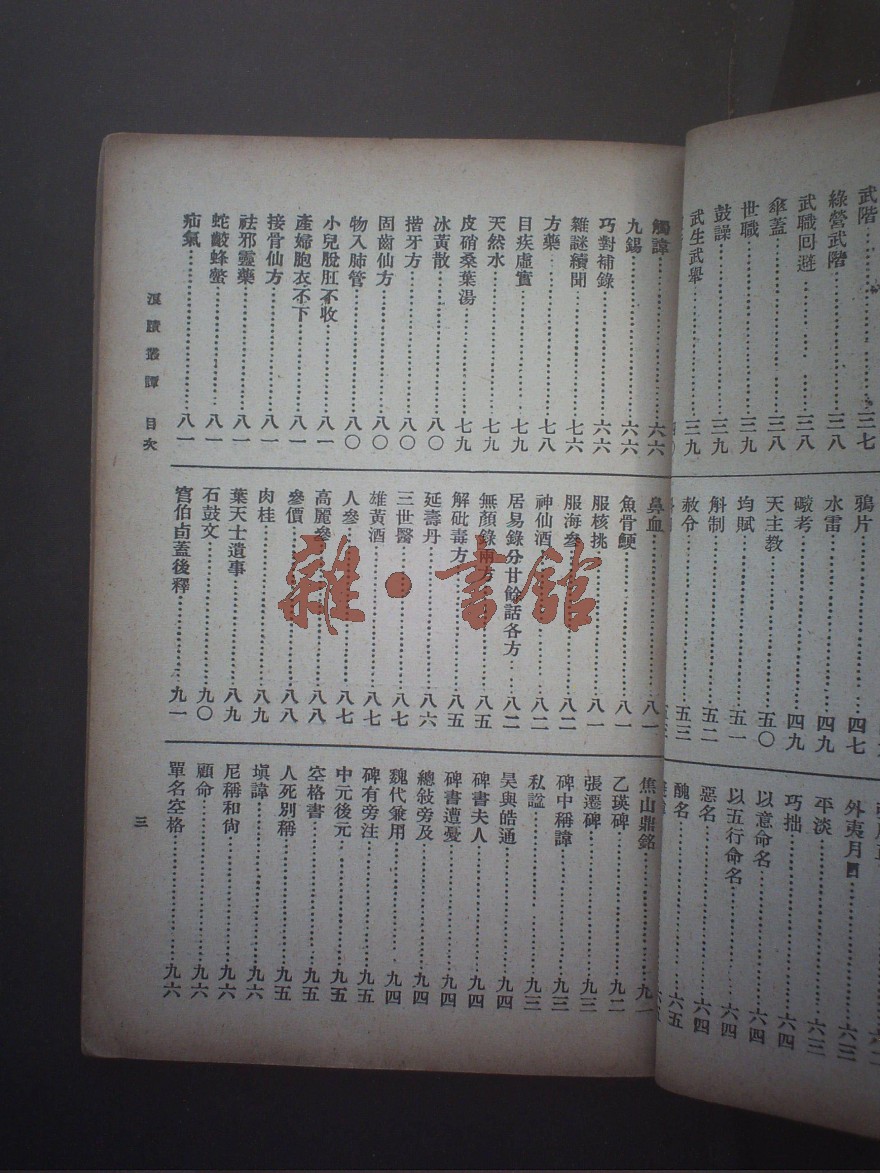 武階⋯⋯三七
綠營武階⋯⋯三八
武職回避⋯⋯三八
傘蓋⋯⋯三八
世職⋯⋯三九
鼓譟⋯⋯三九
武生武舉⋯⋯三九
鴉片⋯⋯四七
水雷⋯⋯四九
礮考⋯⋯四九
天主教⋯⋯五〇
均賦⋯⋯五一
斛制⋯⋯五二
赦令⋯⋯五三
外夷月⋯⋯六三
平淡⋯⋯六三
巧拙⋯⋯六四
以意命名⋯⋯六四
以五行命名⋯⋯六四
惡名⋯⋯六四
醜名⋯⋯六五
觸諱⋯⋯六六
九錫⋯⋯六六
巧對補錄⋯⋯六六
雜謎續聞⋯⋯七六
方藥⋯⋯七八
目疾虛實⋯⋯七九
天然水⋯⋯七九
皮硝桑葉湯⋯⋯七九
冰黃散⋯⋯八〇
揩牙方⋯⋯八〇
固齒仙方⋯⋯八〇
物入肺管⋯⋯八〇
小兒脫肛不收⋯⋯八一
產婦胞衣不下⋯⋯八一
接骨仙方⋯⋯八一
祛邪靈藥⋯⋯八一
蛇齩蜂螫⋯⋯八一
疝氣⋯⋯八一
鼻血⋯⋯八一
魚骨鯁⋯⋯八一
服核桃⋯⋯八一
服海參⋯⋯八二
神仙酒⋯⋯八二
居易錄分甘餘話各方⋯⋯八二
無顏錄兩方⋯⋯八五
解砒毒方⋯⋯八五
延壽丹⋯⋯八六
三世醫⋯⋯八七
雄黃酒⋯⋯八七
人參⋯⋯八七
高麗參⋯⋯八八
參價⋯⋯八八
肉桂⋯⋯八九
葉天士遺事⋯⋯八九
石鼓文⋯⋯九〇
伯卣蓋後釋⋯⋯九一
焦山鼎銘⋯⋯九一
乙瑛碑⋯⋯九二
張遷碑⋯⋯九三
碑中稱諱⋯⋯九三
私諡⋯⋯九三
昊與皓通⋯⋯九四
碑書夫人⋯⋯九四
碑書遭憂⋯⋯九四
總敍旁及⋯⋯九四
魏代兼用⋯⋯九四
碑有旁注⋯⋯九五
中元後元⋯⋯九五
空格書⋯⋯九五
人死別稱⋯⋯九五
塡諱⋯⋯九六
尼稱和尙⋯⋯九六
顧命⋯⋯九六
單名空格⋯⋯九六
浪蹟叢譚 目次
三
雜·書館